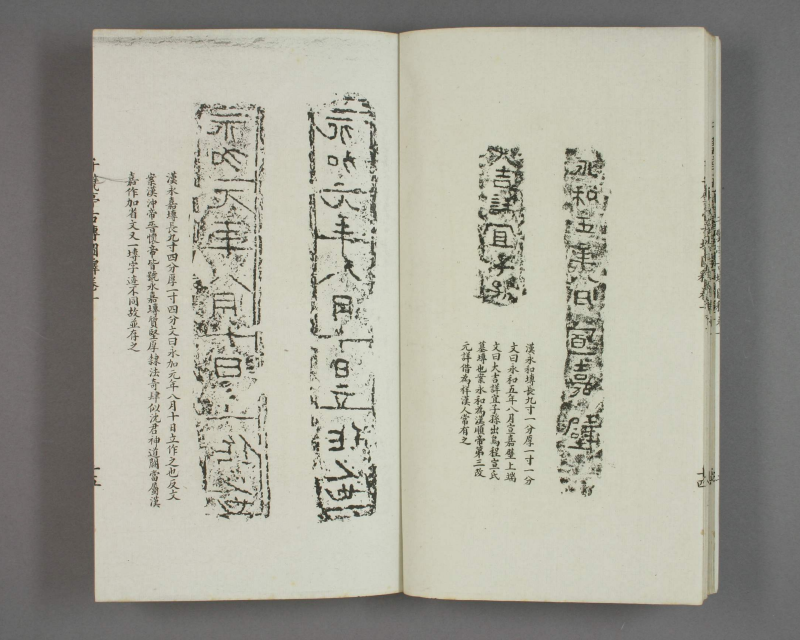 永和五年八月宣嘉壁
大吉詳宜子孫
漢永和塼長九寸一分厚一寸一分
文曰永和五年八月宣嘉壁上端
文曰大吉詳宜子孫出烏程宣氏
墓塼也案永和為漢順帝第三改
元詳借為祥漢人常有之
十四
永加元年八月十日立作
永加元年八月十日立作
漢永嘉塼長九寸四分厚一寸四分文曰永加元年八月十日立作之也反文
案漢沖帝晉懷帝皆號永嘉塼質堅厚隸法奇肆似沈君神道闕當屬漢
嘉作加者文又一塼字迹不同故並存之
千甓亭古塼圖釋卷一
十五